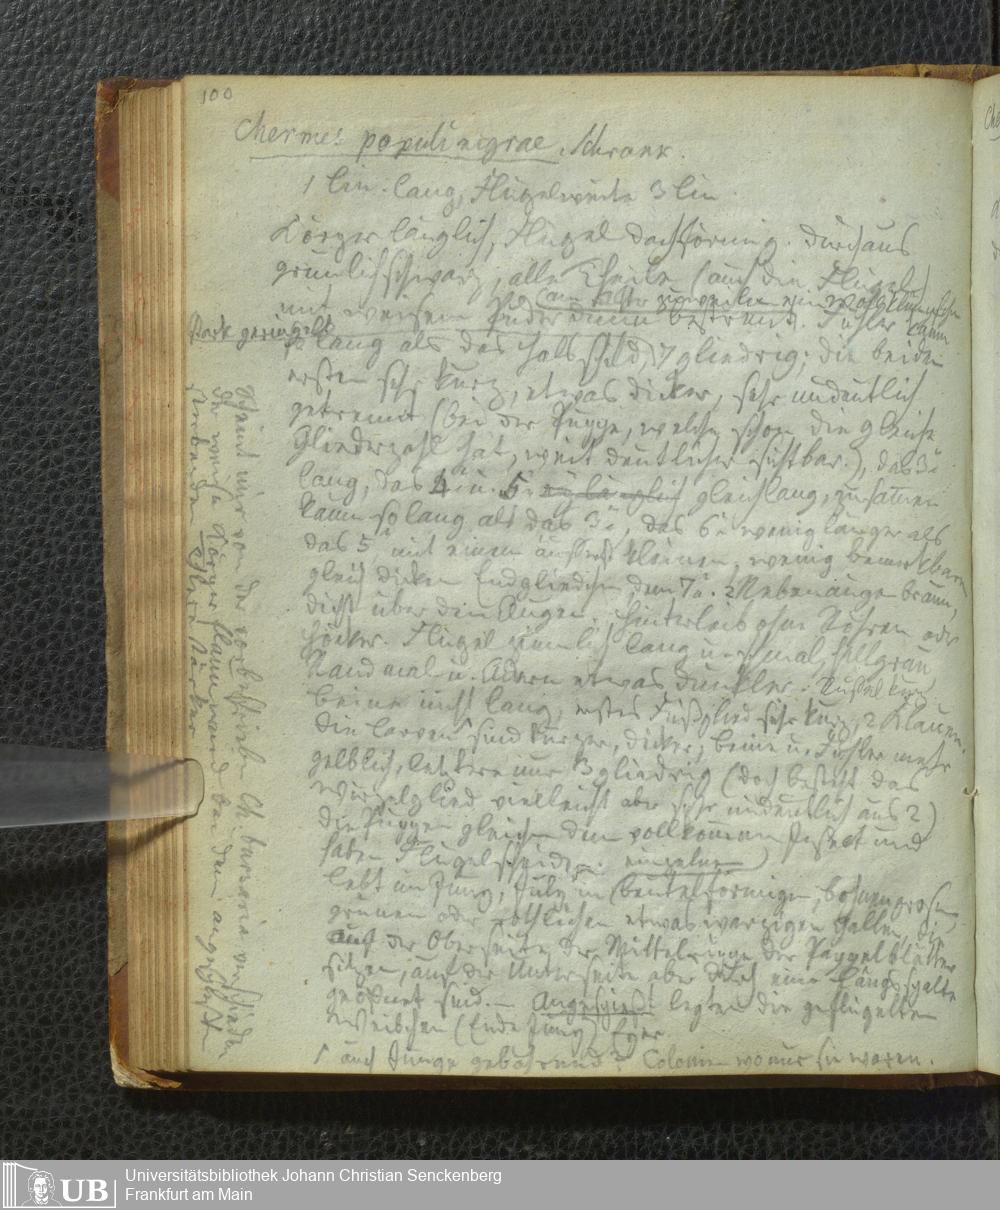 100
Chermes populi nigrae. Schrank.
1 lin. lang, Flügelweite 3 lin
Körper länglich, Flügel dachförmig. durchaus
grünlichschwarz, alle Theile (auch die Flügel)
mit weisem Puder dünn bestreut. Fühler kaum
(am After zuweilen ein Wollklümpchen
stark geringelt
so lang als das Halsschild, 7 gliedrig; die beiden
ersten sehr kurz, etwas dicker, sehr undeutlich
getrennt (bei der Puppe, welche schon die gleiche
Gliederzahl hat, weit deutlicher sichtbar.), das 3e
lang, das 4e u. 5e gleichlang, zusammen
kaum so lang als das 3e, das 6e wenig länger als
das 5e mit einem äusserst kleinen, wenig bemerkbaren
gleich dicken Endgliedchen, dem 7n. 2 Nebenaugen braun,
dicht über den Augen. Hinterleib ohne Röhren oder
Höcker. Flügel ziemlich lang u. schmal, hellgrau
Randmal u. Adern etwas dunkler. Rüssel kurz
Beine nicht lang, erstes Fußglied sehr kurz, 2 Klauen.
Die Larven sind kürzer, dicker, Beine u. Fühler mehr
gelblich, letztere nur 3 gliedrig (doch besteht das
Wurzelglied vielleicht aber sehr undeutlich aus 2)
Die Puppen gleichen dem vollkommnen Insect und
haben Flügelscheiden. einzelnen
lebt im Juny, July in beutelförmigen, bohnengrosen,
grünen oder röthlichen etwas warzigen Gallen, die
auf der Oberseite der Mittelrippe der Pappelblätter
sitzen, auf der Unterseite aber durch eine Längsspalte
geöffnet sind. – Angespiest legten die geflügelten
Weibchen (Ende Juny) Eyer
auch Junge gebährend? Colonien wo nur sie waren.
Scheint mir von der vorbeschriebnen Ch. bursaria verschieden
der weise Körperflaum war bei den angespiesten
sterbenden Thiere stärker
Universitätsbibliothek Johann Christian Senckenberg
Frankfurt am Main
UB